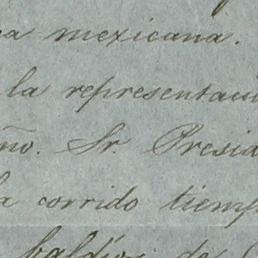 mexicana.
la representaci
ño. Sr. Presid
corrido tiemp
baldíos de